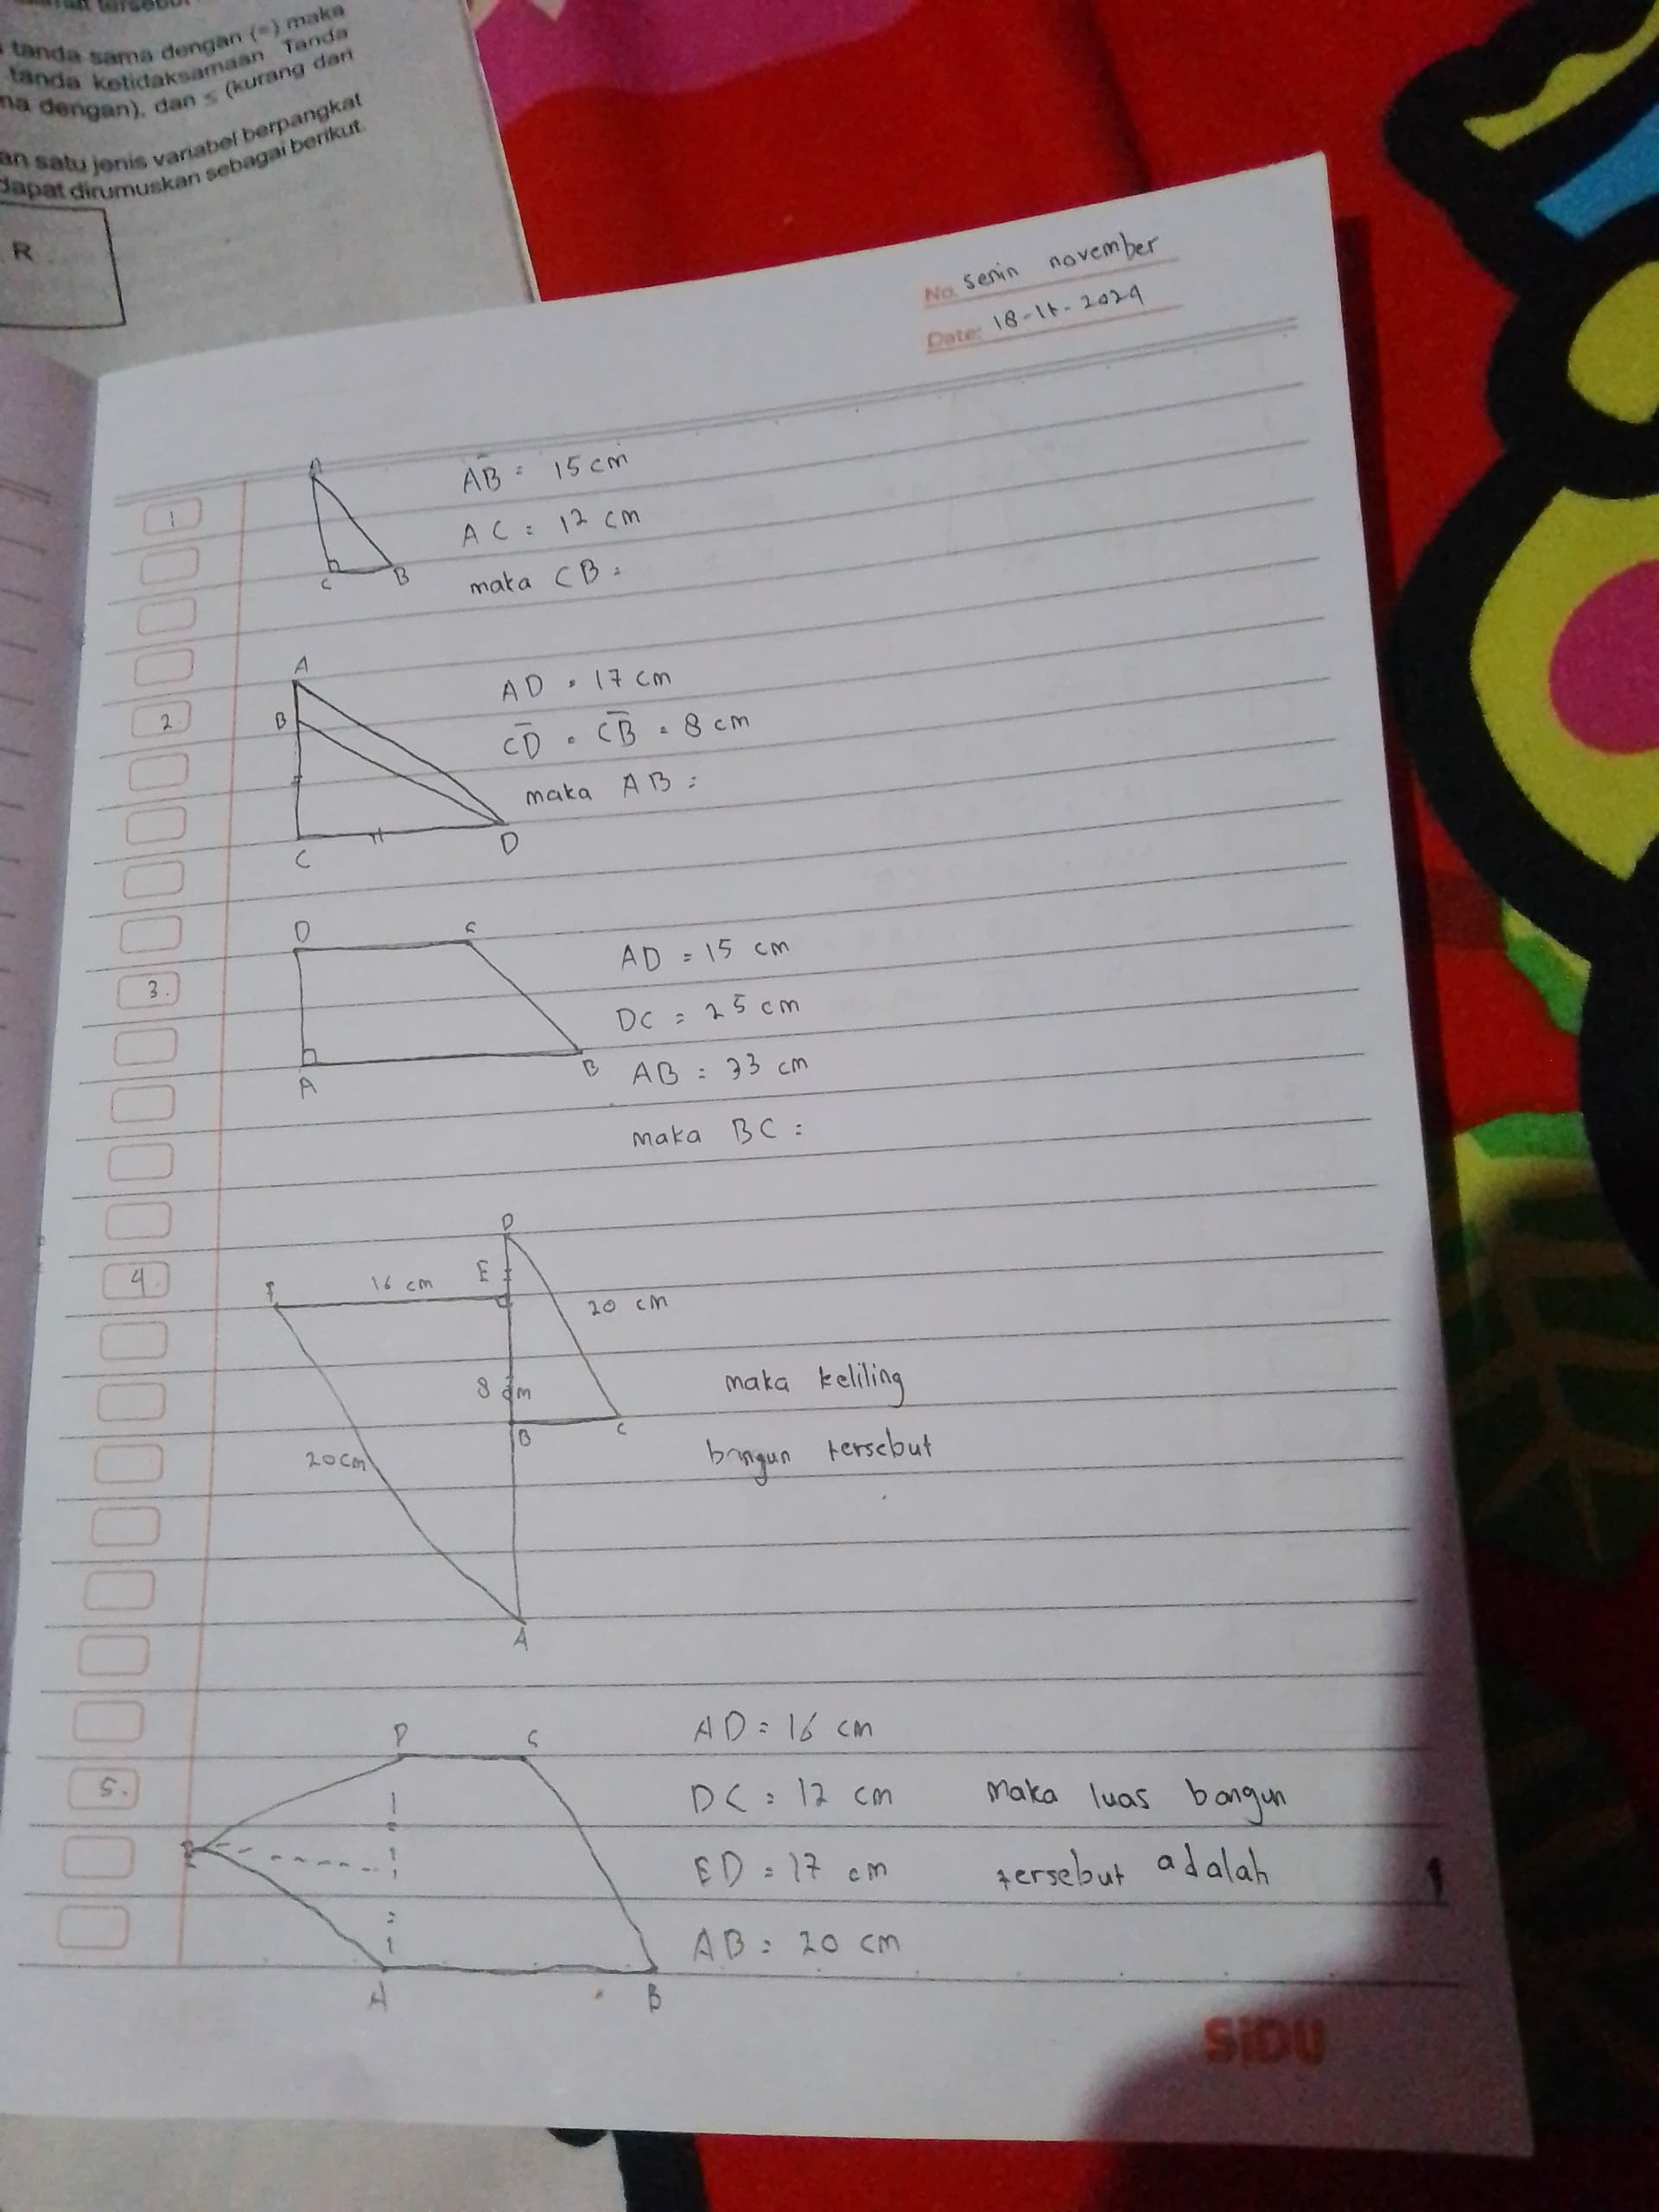 tanda sama dengan (=) maka
tanda ketidaksamaan Tanda
dengan), dan ≤ (kurang dari
satu jenis variabel berpangkat
dapat dirumuskan sebagai berikut.
R
No. senin november
Date: 18-11-2024
1
A
AB = 15 cm
AC = 12 cm
C B
maka CB =
A
2.
B
AD = 17 cm
CD = CB = 8 cm
maka AB =
C D
D C
AD = 15 cm
3.
DC = 25 cm
A B
AB = 33 cm
maka BC =
D
4.
F 16 cm E
20 cm
8 cm
maka keliling
B C
20 cm
bangun tersebut
A
D C
AD = 16 cm
5.
DC = 12 cm maka luas bangun
ED = 17 cm tersebut adalah
AB = 20 cm
A B
SiDU